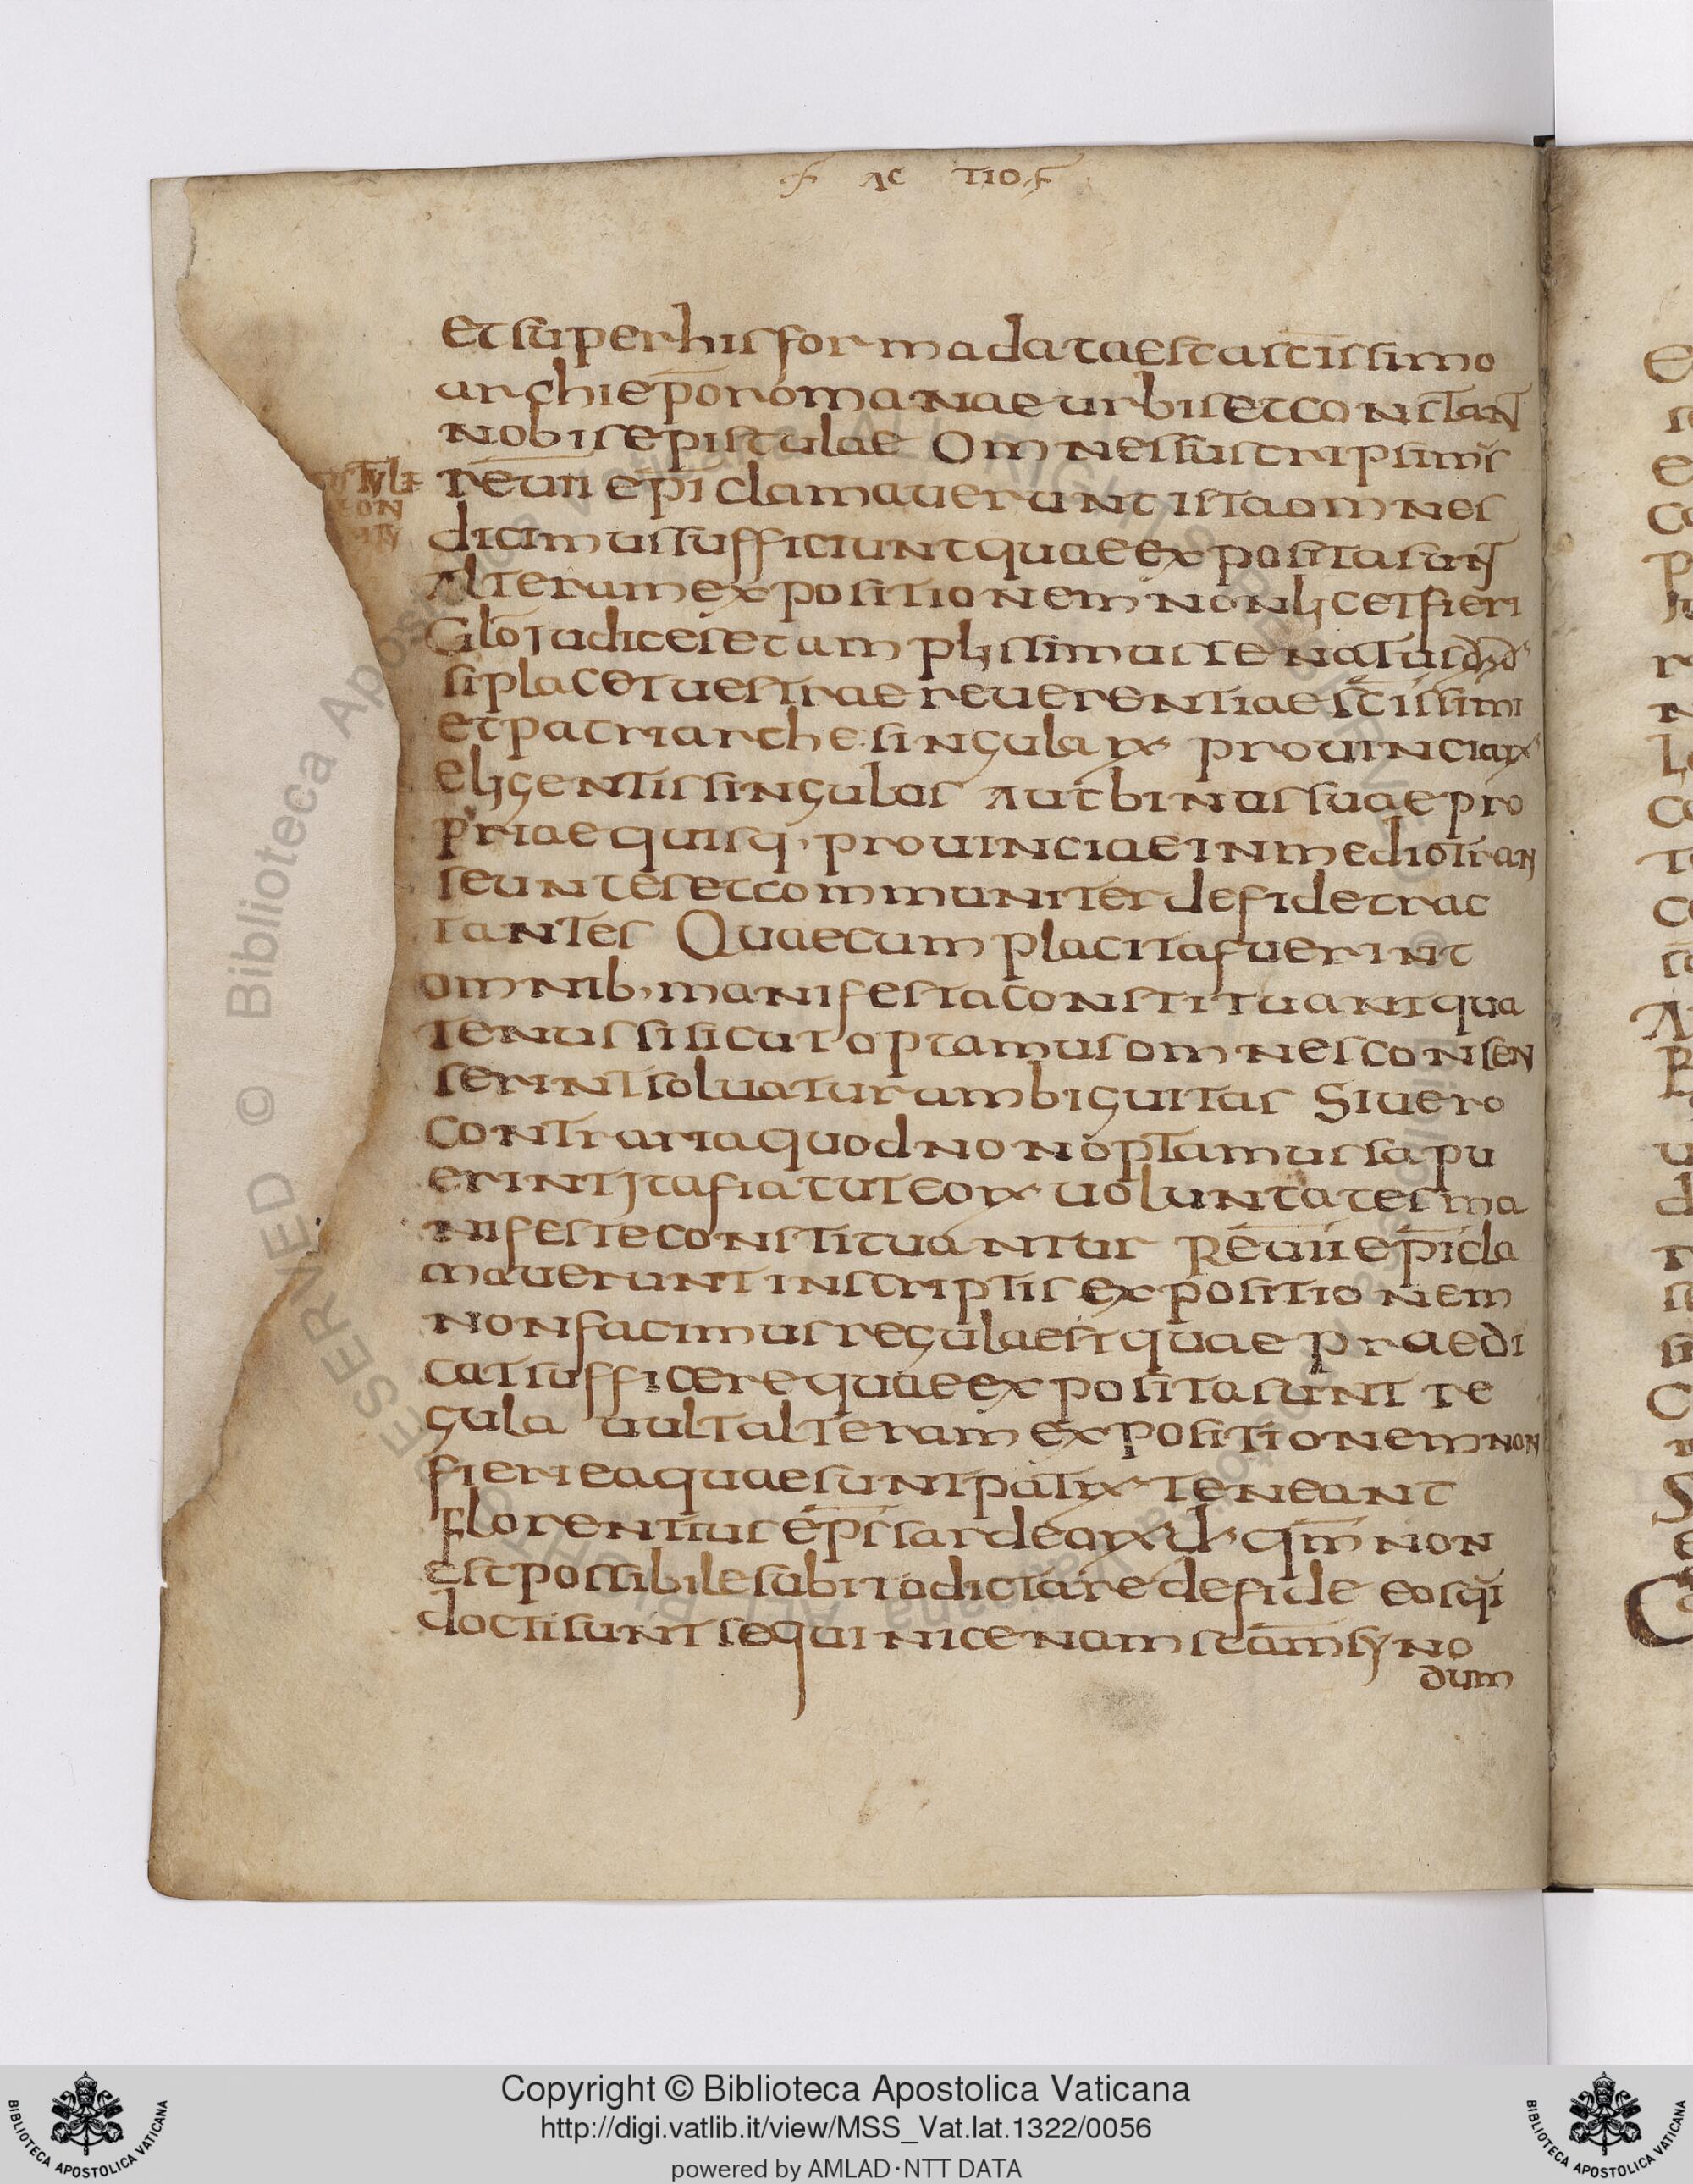 AC TIO
et super his forma data est a sc̄issimo
archiep̄o romanae urbis et constan̄
nobis epistulae Omnes suscripsim's
reūii epi clamauerunt ista omnes
dicimus sufficiunt quae exposita sunt
Alteram expositionem non licet fieri
Glō iudices et amplissimus senatus dx̄d
si placet uestrae reuerentiae sc̄issimi
et patriarche singularꝝ prouinciarꝝ
eligentis singulos aut binos suae pro
priae quisq· prouinciae in medio tran
seuntes et communiter de fide trac
tantes Quaecum placita fuerint
omnib· manifesta constituant qua
tenus si sicut optamus omnes consen
serint soluatur ambiguitas Si uero
contraria quod non optamus sapu
erint ita fiat ut eorꝝ uoluntates ma
nifeste constituantur Reūii ep̄i cla
mauerunt in scriptis expositionem
non facimus regula est quae praedi
cat sufficere quae exposita sunt re
gula uult alteram expositionem non
fieri ea quae sunt patrꝝ teneant
florentius ep̄s sardearꝝ d· qm̄ non
est possibile subito dictare de fide eos qi
docti sunt sequi nicenam sc̄am syno
dum
Copyright © Biblioteca Apostolica Vaticana
http://digi.vatlib.it/view/MSS_Vat.lat.1322/0056
powered by AMLAD·NTT DATA